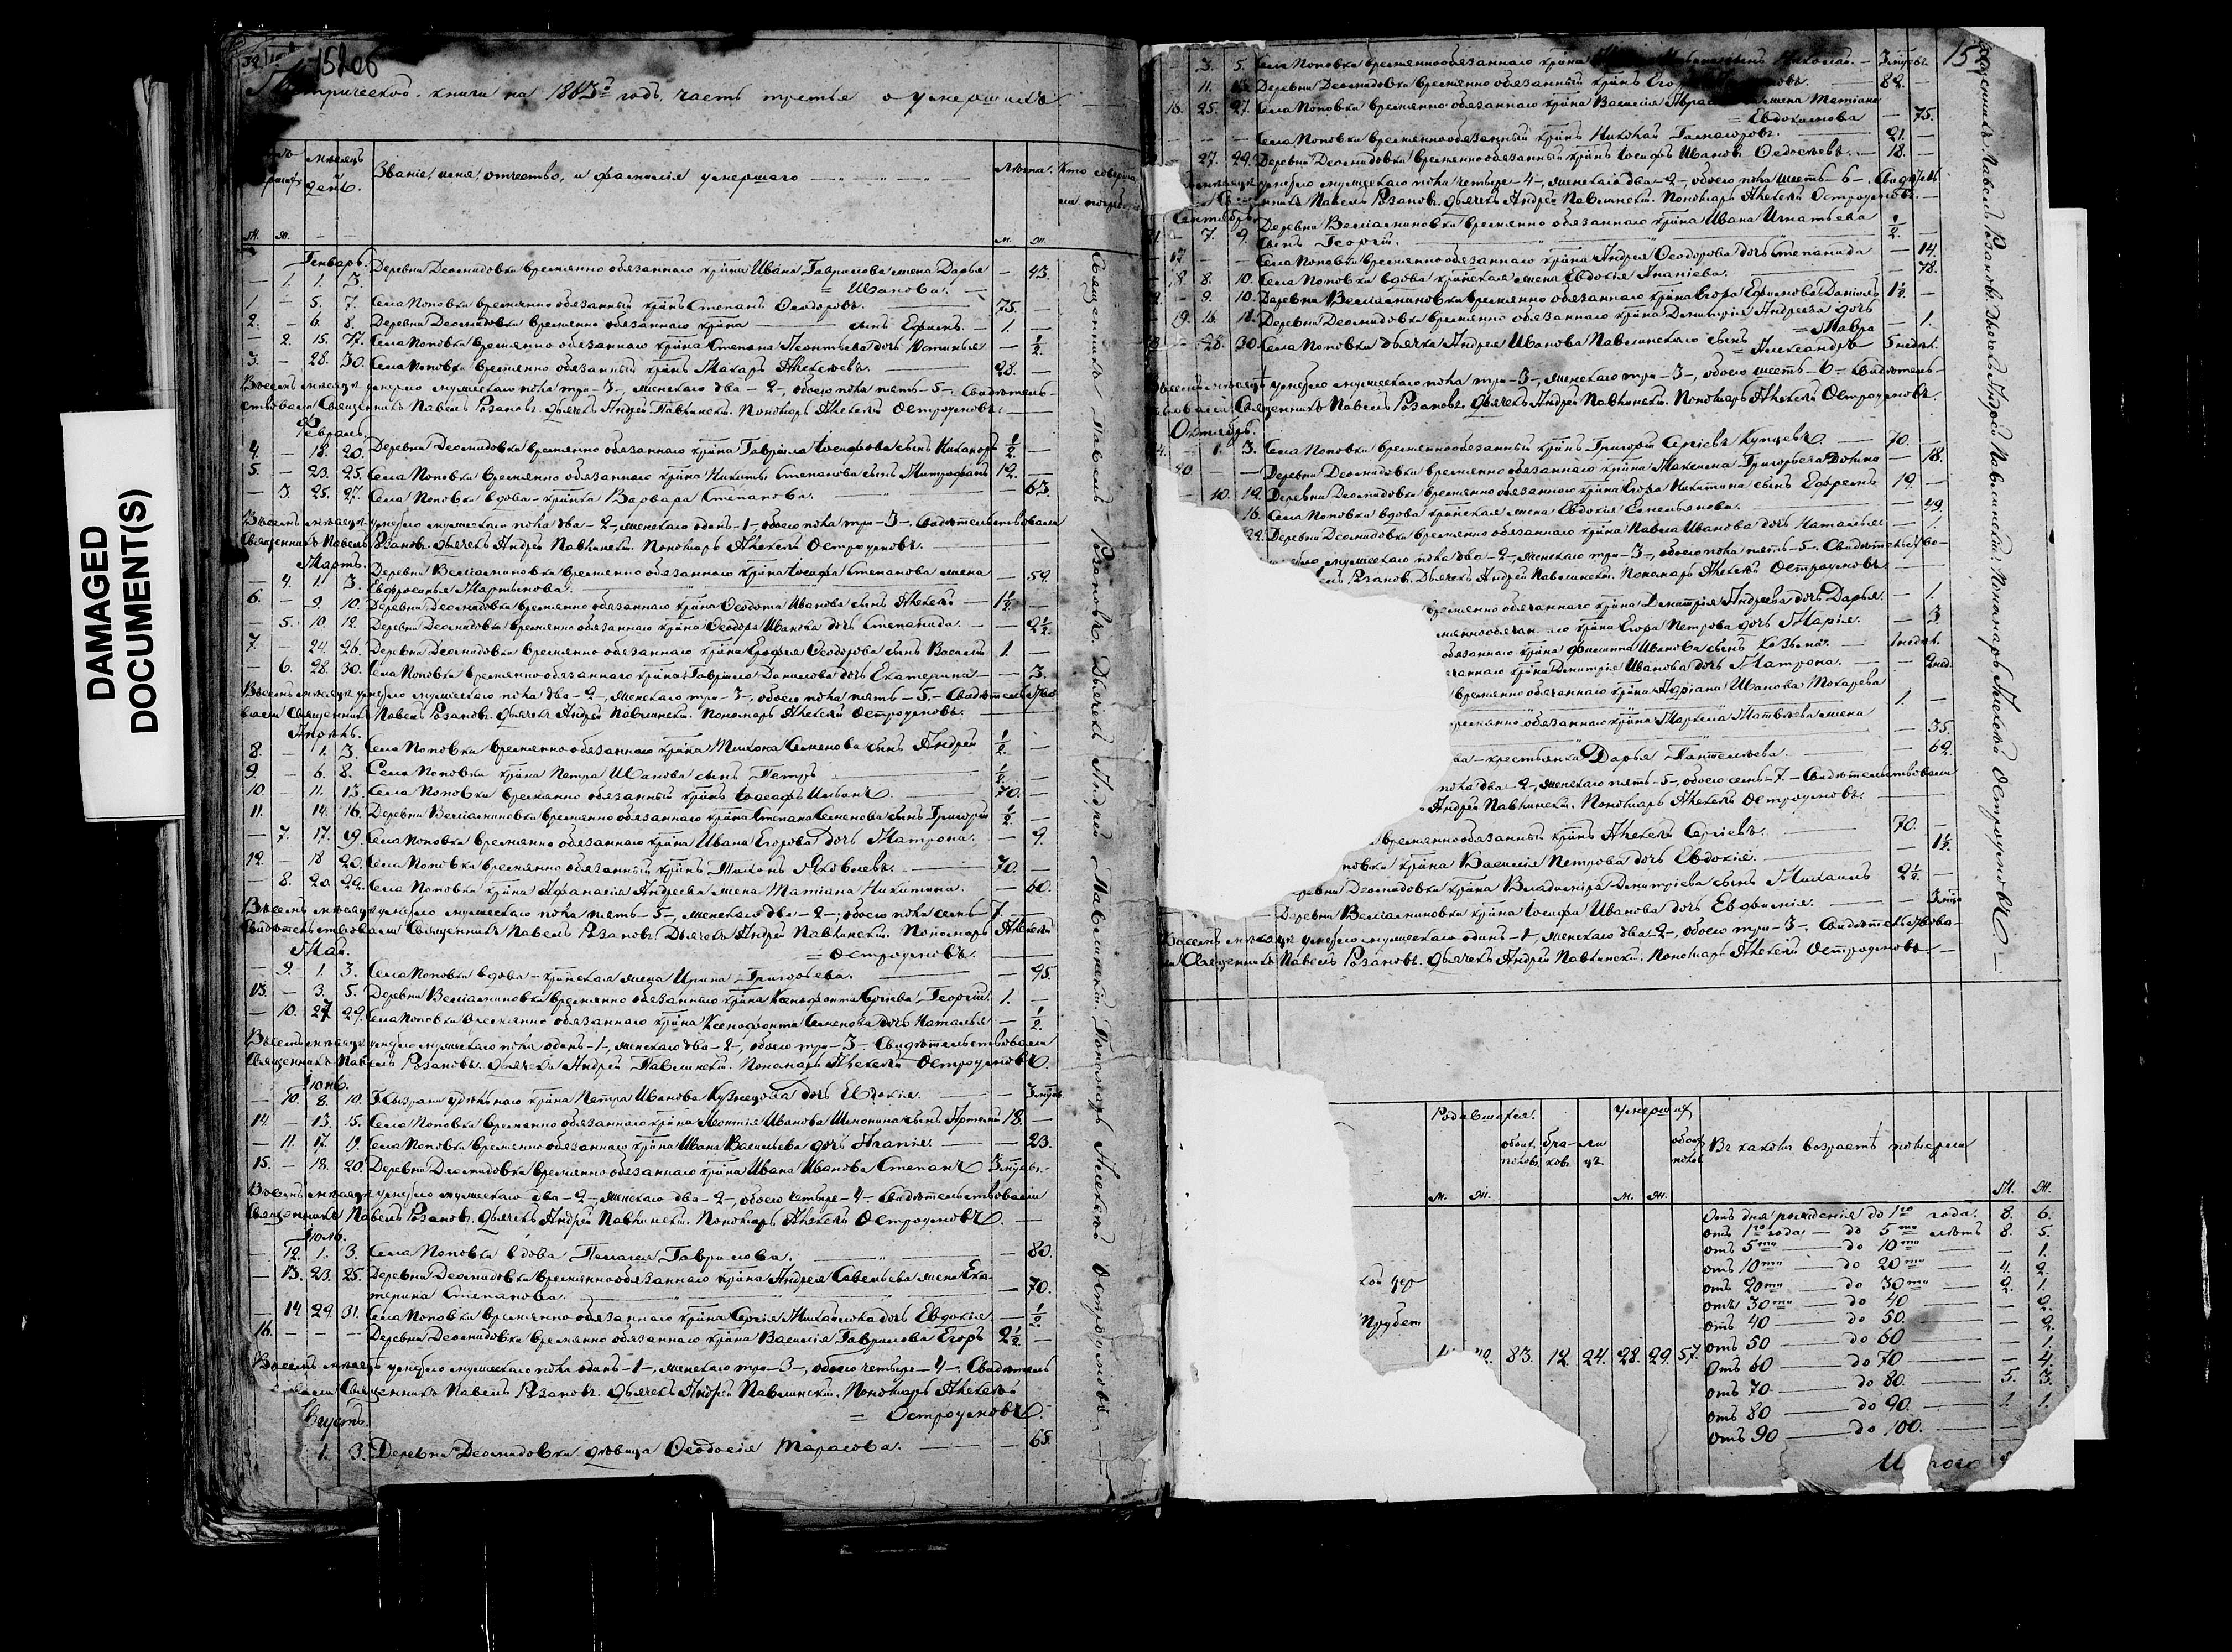 DAMAGED
DOCUMENT(S)
152об
Метрической книги на 1863й годъ, часть третья о умершихъ
Мѣсяцъ и день. Званіе, имя, отчество, и фамилія умершаго Лѣта. Кто совершалъ погребеніе
м. ж. м. ж.
Генварь.
1. 1. 3. Деревни Деомидовки временно обязаннаго кр̃ина Ивана Гаврилова жена Дарья
Иванова. 43.
1. 5. 7. Села Поповки временно обязанный кр̃инъ Степанъ Ѳеодоровъ. 75.
2. 6. 8. Деревни Деомидовки временно обязаннаго кр̃ина сынъ Ефимъ. 1.
2. 15. 17. Села Поповки временно обязаннаго кр̃ина Степана Леонтьева дочь Устинья ½.
3. 28. 30. Села Поповки временно обязанный кр̃инъ Макаръ Алексѣевъ. 28.
Всѣмъ мѣсяцѣ умерло мужескаго пола три -3-, женскаго два -2-, обоего пола пять -5-. Свидѣтель-
ствовали Священникъ Павелъ Розановъ. Дьячекъ Андрей Павлинскій. Пономарь Алексѣй Остроумовъ.
Февраль.
4. 18. 20. Деревни Деомидовки временно обязаннаго кр̃ина Гавріила Іосифова сынъ Никаноръ ½.
5. 23. 25. Села Поповки временно обязаннаго кр̃ина Никиты Степанова сынъ Митрофанъ 12.
3. 25. 27. Села Поповки вдова-кр̃инка Варвара Степанова. 63.
Всѣмъ мѣсяцѣ умерло мужескаго пола два -2-, женскаго одинъ -1- обоего пола три -3-. Свидѣтельствовали
Священникъ Павелъ Розановъ. Дьячекъ Андрей Павлинскій. Пономарь Алексѣй Остроумовъ.
Мартъ.
4. 1. 3. Деревни Веніаминовки временно обязаннаго кр̃ина Іосифа Степанова жена
Евфросинья Мартынова. 59.
6. 9. 10. Деревни Деомидовки временно обязаннаго кр̃ина Ѳеодота Иванова сынъ Алексѣй 1½.
5. 10. 12. Деревни Деомидовки временно обязаннаго кр̃ина Ѳеодора Иванова дочь Степанида. 2½.
7. 24. 26. Деревни Деомидовки временно обязаннаго кр̃ина Ерофея Ѳеодорова сынъ Василій 1.
6. 28. 30. Села Поповки временно обязаннаго кр̃ина Гавріила Данилова дочь Екатерина 3.
Всѣмъ мѣсяцѣ умерло мужескаго пола два -2-, женскаго три -3-, обоего пола пять -5- Свидѣтельство-
вали Священникъ Павелъ Розановъ. Дьячекъ Андрей Павлинскій. Пономарь Алексѣй Остроумовъ.
Апрѣль.
8. 1. 3. Села Поповки временно обязаннаго кр̃ина Тихона Семенова сынъ Андрей ½.
9. 6. 8. Села Поповки кр̃ина Петра Иванова сынъ Петръ ½.
10. 11. 13. Села Поповки временно обязанный кр̃инъ Іосафъ Ильинъ. 70.
11. 14. 16. Деревни Веніаминовки временно обязаннаго кр̃ина Степана Семенова сынъ Григорій ½.
7. 17. 19. Села Поповки временно обязаннаго кр̃ина Ивана Егорова дочь Матрона. 9.
12. 18. 20. Села Поповки временно обязанный кр̃инъ Тихонъ Яковлевъ. 70.
8. 20. 22. Села Поповки кр̃ина Афанасія Андреева жена Татіана Никитина. 60.
Всѣмъ мѣсяцѣ умерло мужескаго пола пять -5-, женскаго два -2-, обоего пола семь -7.
Свидѣтельствовали Священникъ Павелъ Розановъ. Дьячекъ Андрей Павлинскій. Пономарь Алексѣй
Остроумовъ.
Май.
9. 1. 3. Села Поповки вдова-кр̃инская жена Ирина Григорьева. 95.
13. 3. 5. Деревни Веніаминовки временно обязаннаго кр̃ина Ксенофонта Сергіева Георгій. 1.
10. 27. 29. Села Поповки временно обязаннаго кр̃ина Ксенофонта Семенова дочь Наталья ½.
Всѣмъ мѣсяцѣ умерло мужескаго пола одинъ -1-, женскаго два -2-, обоего три -3-. Свидѣтельствовали
Священникъ Павелъ Розановъ. Дьячекъ Андрей Павлинскій. Пономарь Алексѣй Остроумовъ.
Іюнь.
10. 8. 10. удѣльнаго кр̃ина Петра Иванова Кузнецова дочь Евдокія. 3 мѣсе.
14. 13. 15. Села Поповки временно обязаннаго кр̃ина Леонтія Иванова сынъ Артемій 18.
11. 17. 19. Села Поповки временно обязаннаго кр̃ина Ивана Васильева дочь Агапія. 23.
15. 18. 20. Деревни Деомидовки временно обязаннаго кр̃ина Ивана Иванова Степанъ 3 мѣсе.
Всѣмъ мѣсяцѣ умерло мужескаго два -2-, женскаго два -2-, обоего четыре -4-. Свидѣтельствовали
Священникъ Павелъ Розановъ. Дьячекъ Андрей Павлинскій. Пономарь Алексѣй Остроумовъ.
Іюль.
12. 1. 3. Села Поповки вдова Пелагея Гаврилова. 80.
13. 23. 25. Деревни Деомидовки временно обязаннаго кр̃ина Андрея Савельева жена Ека-
терина Степанова. 70.
14. 29. 31. Села Поповки временно обязаннаго кр̃ина Сергія Михайлова дочь Евдокія ½.
16. Деревни Деомидовки временно обязаннаго кр̃ина Василія Гаврилова Егоръ 2½.
Всѣмъ мѣсяцѣ умерло мужескаго пола одинъ -1-, женскаго три -3-, обоего четыре -4-. Свидѣтель
Священникъ Павелъ Розановъ. Дьячекъ Андрей Павлинскій. Пономарь Алексѣй
Остроумовъ.
Августъ.
1. 3. Деревни Деомидовки дѣвица Ѳеодосія Тарасова. 65.
Священникъ Павелъ Розановъ. Дьячекъ Андрей Павлинскій. Пономарь Алексѣй Остроумовъ.
3. 5. Села Поповки временнообязаннаго кр̃ина Николай. 3 мѣсе.
11. 13. Деревни Деомидовки временно обязанный кр̃инъ Егоръ 82.
16. 25. 27. Села Поповки временно обязаннаго кр̃ина Василія жена Татіана
Евдокимова 75.
Села Поповки временнообязанный кр̃инъ Николай 21.
27. 29. Деревни Деомидовки временнообязанный кр̃инъ Іосифъ Иванов. Ѳедосѣевъ. 18.
умерло мужескаго пола четыре -4-, женскаго два -2-, обоего пола шесть -6-. Свидѣтель
Павелъ Розановъ. Дьячекъ Андрей Павлинскій. Пономарь Алексѣй Остроумовъ.
Сентябрь.
7. 9. Деревни Веніаминовки временно обязаннаго кр̃ина Ивана Игнатьева
сынъ Георгій. ½.
17. Села Поповки временно обязаннаго кр̃ина Андрея Ѳеодорова дочь Степанида 14.
18. 8. 10. Села Поповки вдова кр̃инская жена Евдокія Ананіева. 78.
9. 10. Деревни Веніаминовки временно обязаннаго кр̃ина Егора Ефимова Даніилъ 1½.
19. 16. 18. Деревни Деомидовки временно обязаннаго кр̃ина Димитрія Андреева дочь
Мавра 1.
28. 30. Села Поповки дьячка Андрея Иванова Павлинскаго сынъ
Александръ 5 недѣл.
Всѣмъ мѣсяцѣ умерло мужескаго пола три -3-, женскаго три -3-, обоего шесть -6-. Свидѣтель-
ствовали Священникъ Павелъ Розановъ. Дьячекъ Андрей Павлинскій. Пономарь Алексѣй Остроумовъ.
Октябрь.
1. 3. Села Поповки временнообязанный кр̃инъ Григорій Сергіевъ Купцевъ. 70.
20. Деревни Деомидовки временно обязаннаго кр̃ина Максима Григорьева Домна 18.
10. 12. Деревни Деомидовки временно обязаннаго кр̃ина Егора Никитина сынъ Ефремъ 19.
16. Села Поповки вдова кр̃инская жена Евдокія Емельянова. 49.
22. Деревни Деомидовки временно обязаннаго кр̃ина Павла Иванова дочь Наталья 1.
мужескаго пола два -2-, женскаго три -3-, обоего пола пять -5-. Свидѣтельство-
Розановъ. Дьячекъ Андрей Павлинскій. Пономарь Алексѣй Остроумовъ.
временно обязаннаго кр̃ина Димитрія Андреева дочь Дарья. 1.
кр̃ина Егора Петрова дочь Марія. 3
обязаннаго кр̃ина Филиппа Иванова сынъ Козьма. 1 недѣл.
кр̃ина Димитрія Иванова дочь Матрона. 2 нед.
временно обязаннаго кр̃ина Адріана Иванова Токарева
1.
временно обязаннаго кр̃ина Маркела Матвѣева жена
35.
крестьянка Дарья Пантелѣева. 62.
пола два -2-, женскаго пять -5-, обоего семь -7- Свидѣтельствовали
Андрей Павлинскій. Пономарь Алексѣй Остроумовъ.
временнообязанный кр̃инъ Алексѣй Сергіевъ. 70.
кр̃ина Василія Петрова дочь Евдокія. 1½.
Деревни Деомидовки кр̃ина Владиміра Димитріева сынъ Михаилъ 2½
Деревни Веніаминовки кр̃ина Іосифа Иванова дочь Евфимія. 3 мѣс
Всѣмъ мѣсяцѣ умерло мужескаго одинъ -1-, женскаго два -2-, обоего три -3-. Свидѣтельствова-
ли Священникъ Павелъ Розановъ. Дьячекъ Андрей Павлинскій. Пономарь Алексѣй Остроумовъ
Священникъ Павелъ Розановъ. Дьячекъ Андрей Павлинскій. Пономарь Алексѣй Остроумовъ.
Родившихся. Умершихъ
обоих половъ бра-ковъ обоих половъ Въ какомъ возрастѣ померли
м. ж. м. ж. М. Ж.
83. 12. 24. 28. 29. 57.
Отъ дня рожденія до 1го года. 8. 6.
отъ 1го года до 5ти лѣтъ 8. 5.
отъ 5ти до 10ти 1.
отъ 10ти до 20ти 4. 2.
отъ 20ти до 30ти 2. 1.
отъ 30ти до 40 2.
отъ 40 до 50. 2.
отъ 50 до 60 1.
отъ 60 до 70 4.
отъ 70 до 80. 5. 3.
отъ 80 до 90. 1. 1.
отъ 90 до 100.
Итого